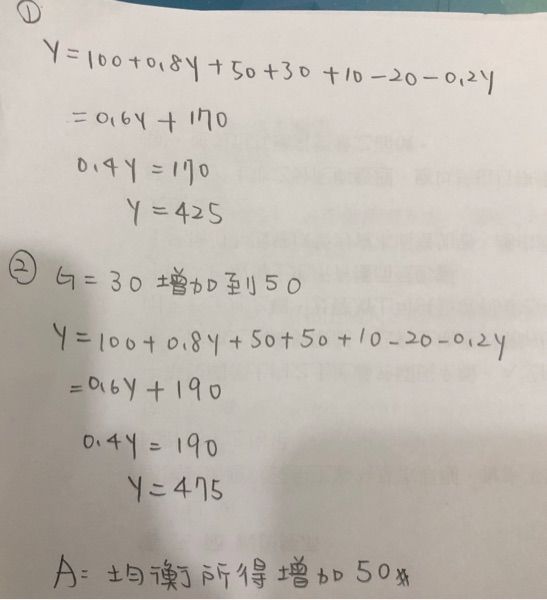 ①
Y=100+0.8Y+50+30+10-20-0.2Y
=0.6Y+170
0.4Y=170
Y=425
② G=30增加到50
Y=100+0.8Y+50+50+10-20-0.2Y
=0.6Y+190
0.4Y=190
Y=475
A=均衡所得增加50